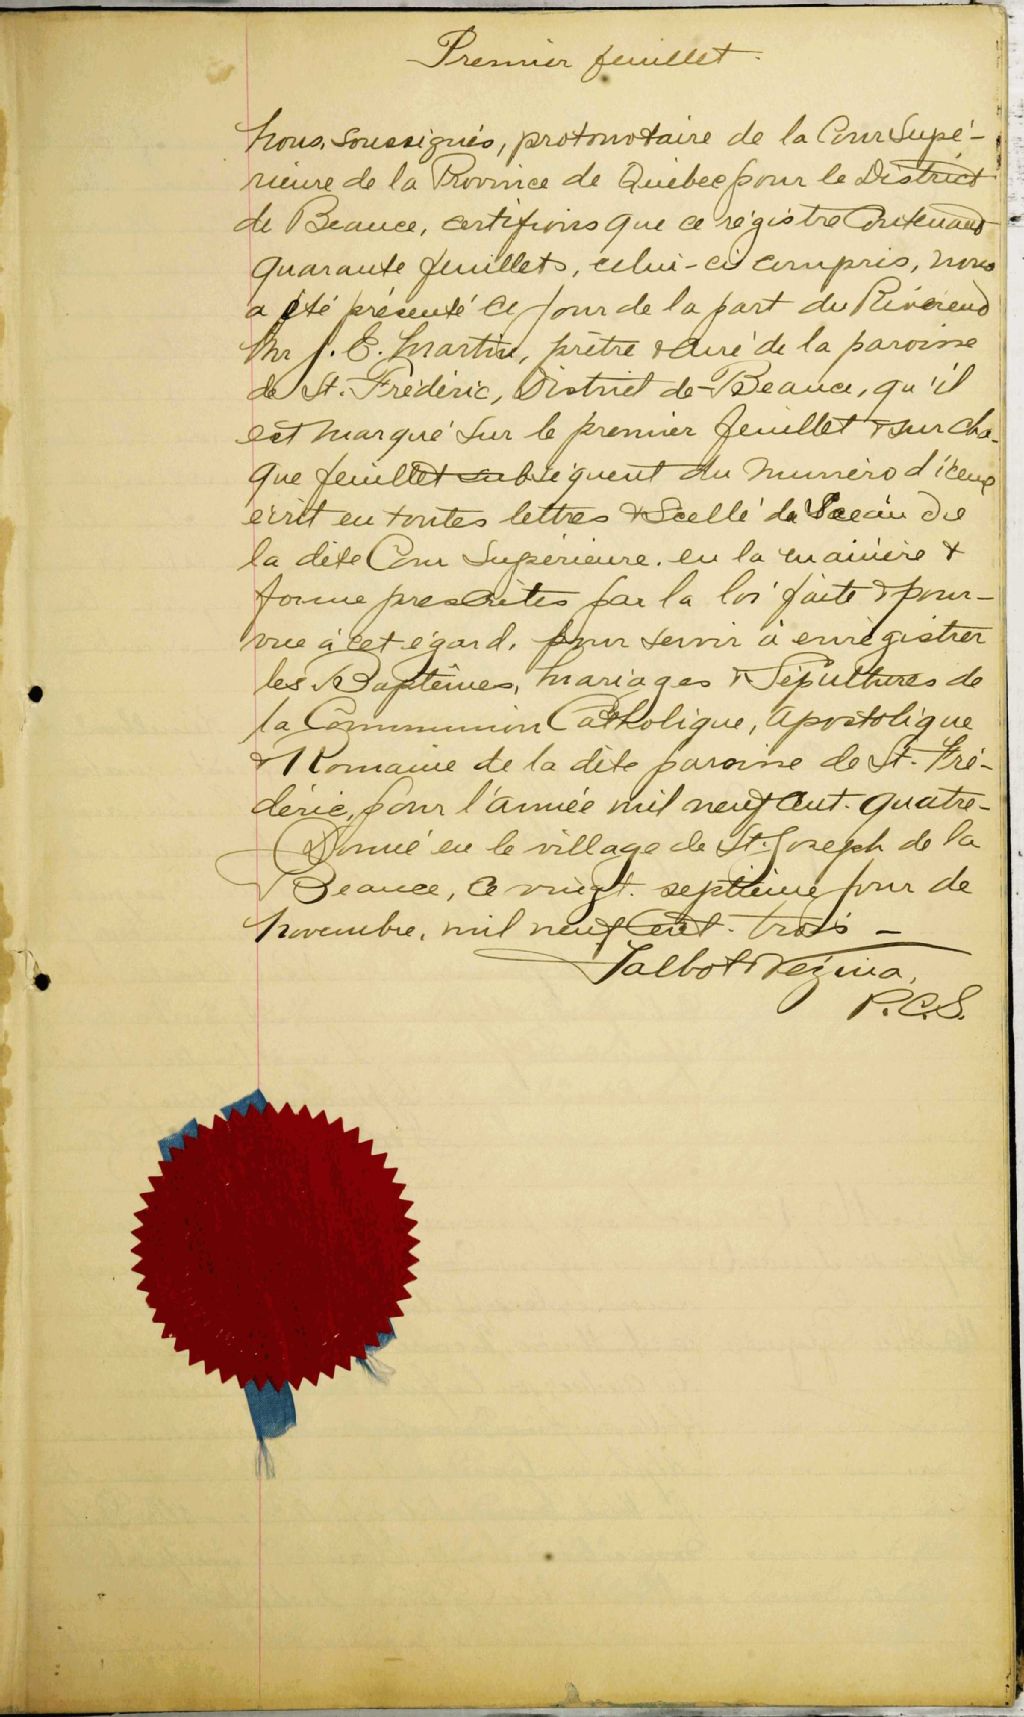 Premier feuillet.
Nous, soussignés, protonotaire de la Cour Supé-
rieure de la Province de Québec pour le District
de Beauce, certifions que ce régistre Contenant
quarante feuillets, celui-ci compris, nous
a été présenté ce jour de la part du Révérend
Mr J. E. Martin, prêtre & curé de la paroisse
de St. Frédéric, District de Beauce, qu'il
est marqué sur le premier feuillet & sur cha-
que feuillet subséquent du numéro d'iceux
écrit en toutes lettres & Scellé du Sceau de
la dite Cour Supérieure. en la manière &
forme prescrites par la loi faite & pour-
vue à cet égard, pour servir à enrégistrer
les Baptêmes, Mariages & Sépultures de
la Communion Catholique, Apostolique
& Romaine de la dite paroisse de St. Fré-
déric, pour l'année mil neuf cent. quatre-
Donné en le village de St. Joseph de la
Beauce, ce vingt. septième jour de
Novembre, mil neuf cent. trois –
Talbot & Vézina,
P.C.S.